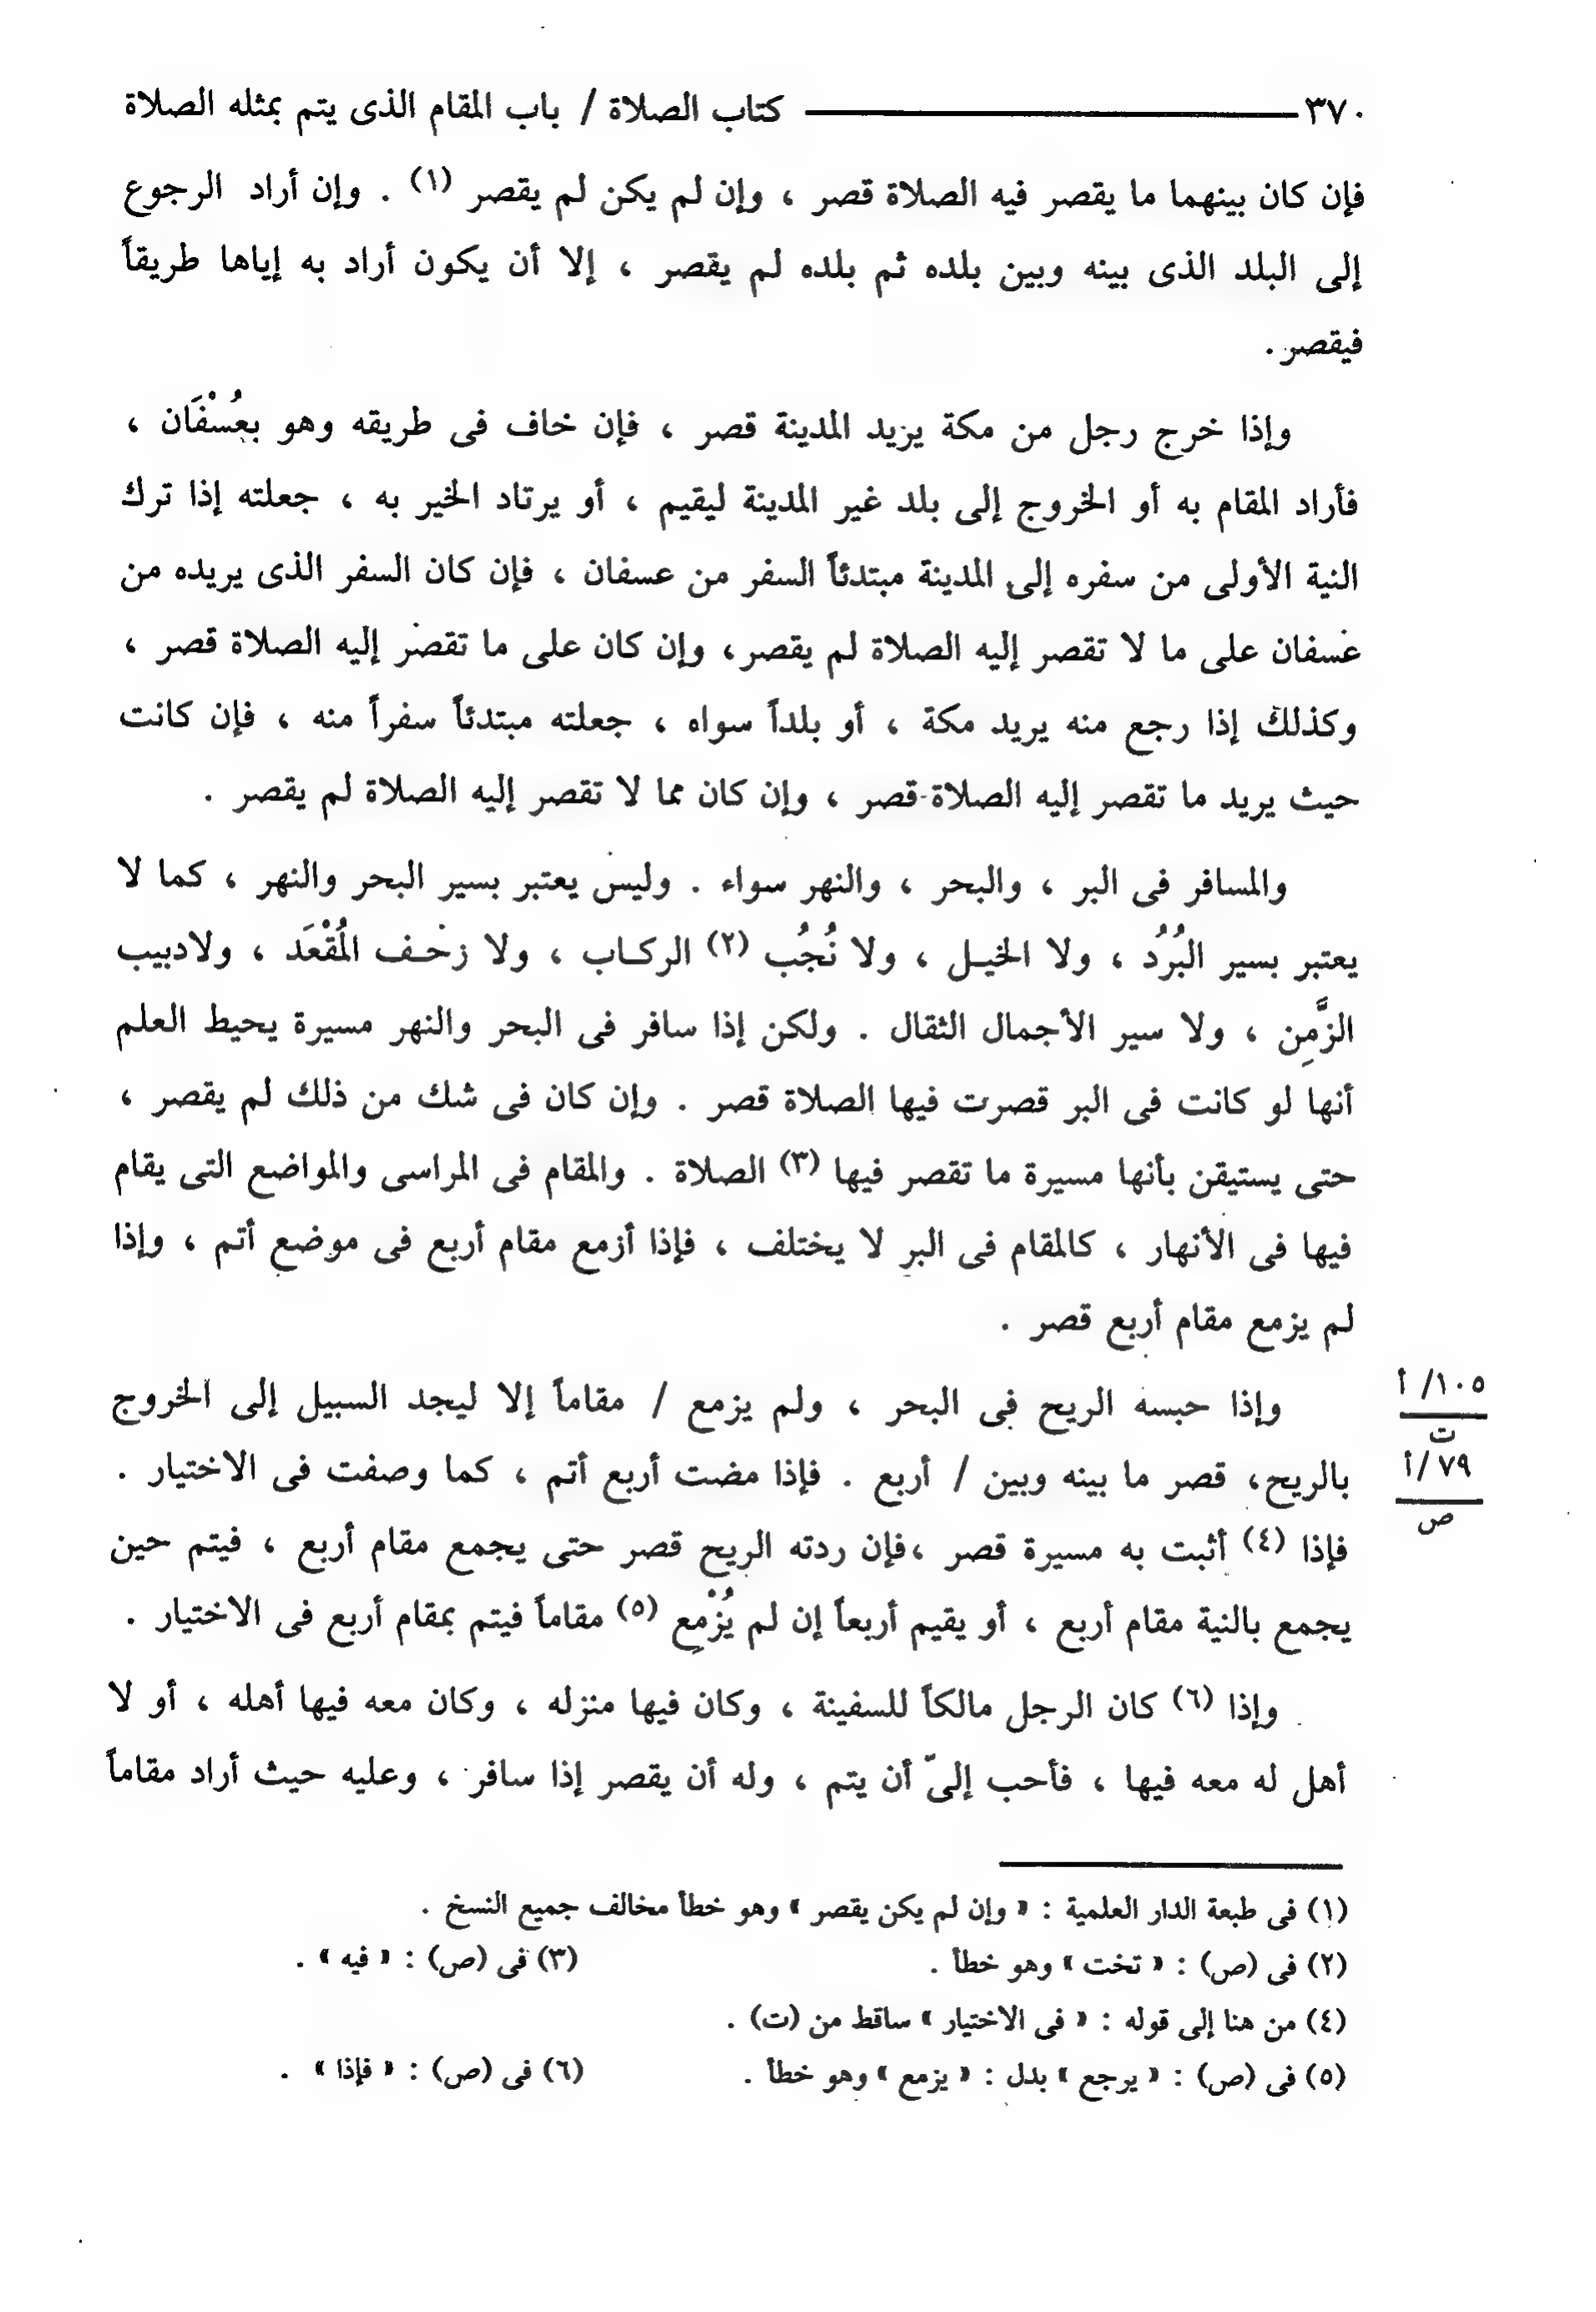 ٣٧٠ ــــــــــ كتاب الصلاة / باب المقام الذى يتم بمثله الصلاة
فإن كان بينهما ما يقصر فيه الصلاة قصر ، وإن لم يكن لم يقصر (١) . وإن أراد الرجوع
إلى البلد الذى بينه وبين بلده ثم بلده لم يقصر ، إلا أن يكون أراد به إياها طريقاً
فيقصر .
وإذا خرج رجل من مكة يريد المدينة قصر ، فإن خاف فى طريقه وهو بعُسْفَان ،
فأراد المقام به أو الخروج إلى بلد غير المدينة ليقيم ، أو يرتاد الخير به ، جعلته إذا ترك
النية الأولى من سفره إلى المدينة مبتدئاً السفر من عسفان ، فإن كان السفر الذى يريده من
عسفان على ما لا تقصر إليه الصلاة لم يقصر، وإن كان على ما تقصر إليه الصلاة قصر ،
وكذلك إذا رجع منه يريد مكة ، أو بلداً سواه ، جعلته مبتدئاً سفراً منه ، فإن كانت
حيث يريد ما تقصر إليه الصلاة قصر ، وإن كان مما لا تقصر إليه الصلاة لم يقصر .
والمسافر فى البر ، والبحر ، والنهر سواء . وليس يعتبر بسير البحر والنهر ، كما لا
يعتبر بسير البُرُد ، ولا الخيـل ، ولا نُجُب (٢) الركـاب ، ولا زحـف المُقْعَد ، ولادبيب
الزَّمِن ، ولا سير الأجمال الثقال . ولكن إذا سافر فى البحر والنهر مسيرة يحيط العلم
أنها لو كانت فى البر قصرت فيها الصلاة قصر . وإن كان فى شك من ذلك لم يقصر ،
حتى يستيقن بأنها مسيرة ما تقصر فيها (٣) الصلاة . والمقام فى المراسى والمواضع التى يقام
فيها فى الأنهار ، كالمقام فى البر لا يختلف ، فإذا أزمع مقام أربع فى موضع أتم ، وإذا
لم يزمع مقام أربع قصر .
وإذا حبسه الريح فى البحر ، ولم يزمع / مقاماً إلا ليجد السبيل إلى الخروج
١٠٥/ أ
ت
بالريح، قصر ما بينه وبين / أربع . فإذا مضت أربع أتم ، كما وصفت فى الاختيار .
٧٩/ أ
ص
فإذا (٤) أثبت به مسيرة قصر ،فإن ردته الريح قصر حتى يجمع مقام أربع ، فيتم حين
يجمع بالنية مقام أربع ، أو يقيم أربعاً إن لم يُزْمِع (٥) مقاماً فيتم بمقام أربع فى الاختيار .
وإذا (٦) كان الرجل مالكاً للسفينة ، وكان فيها منزله ، وكان معه فيها أهله ، أو لا
أهل له معه فيها ، فأحب إلىّ أن يتم ، وله أن يقصر إذا سافر ، وعليه حيث أراد مقاماً
(١) فى طبعة الدار العلمية : « وإن لم يكن يقصر » وهو خطأ مخالف جميع النسخ .
(٢) فى (ص) : « تخت » وهو خطأ . (٣) فى (ص) : « فيه » .
(٤) من هنا إلى قوله : « فى الاختيار » ساقط من (ت) .
(٥) فى (ص) : « يرجع » بدل : « يزمع » وهو خطأ . (٦) فى (ص) : « فإذا » .